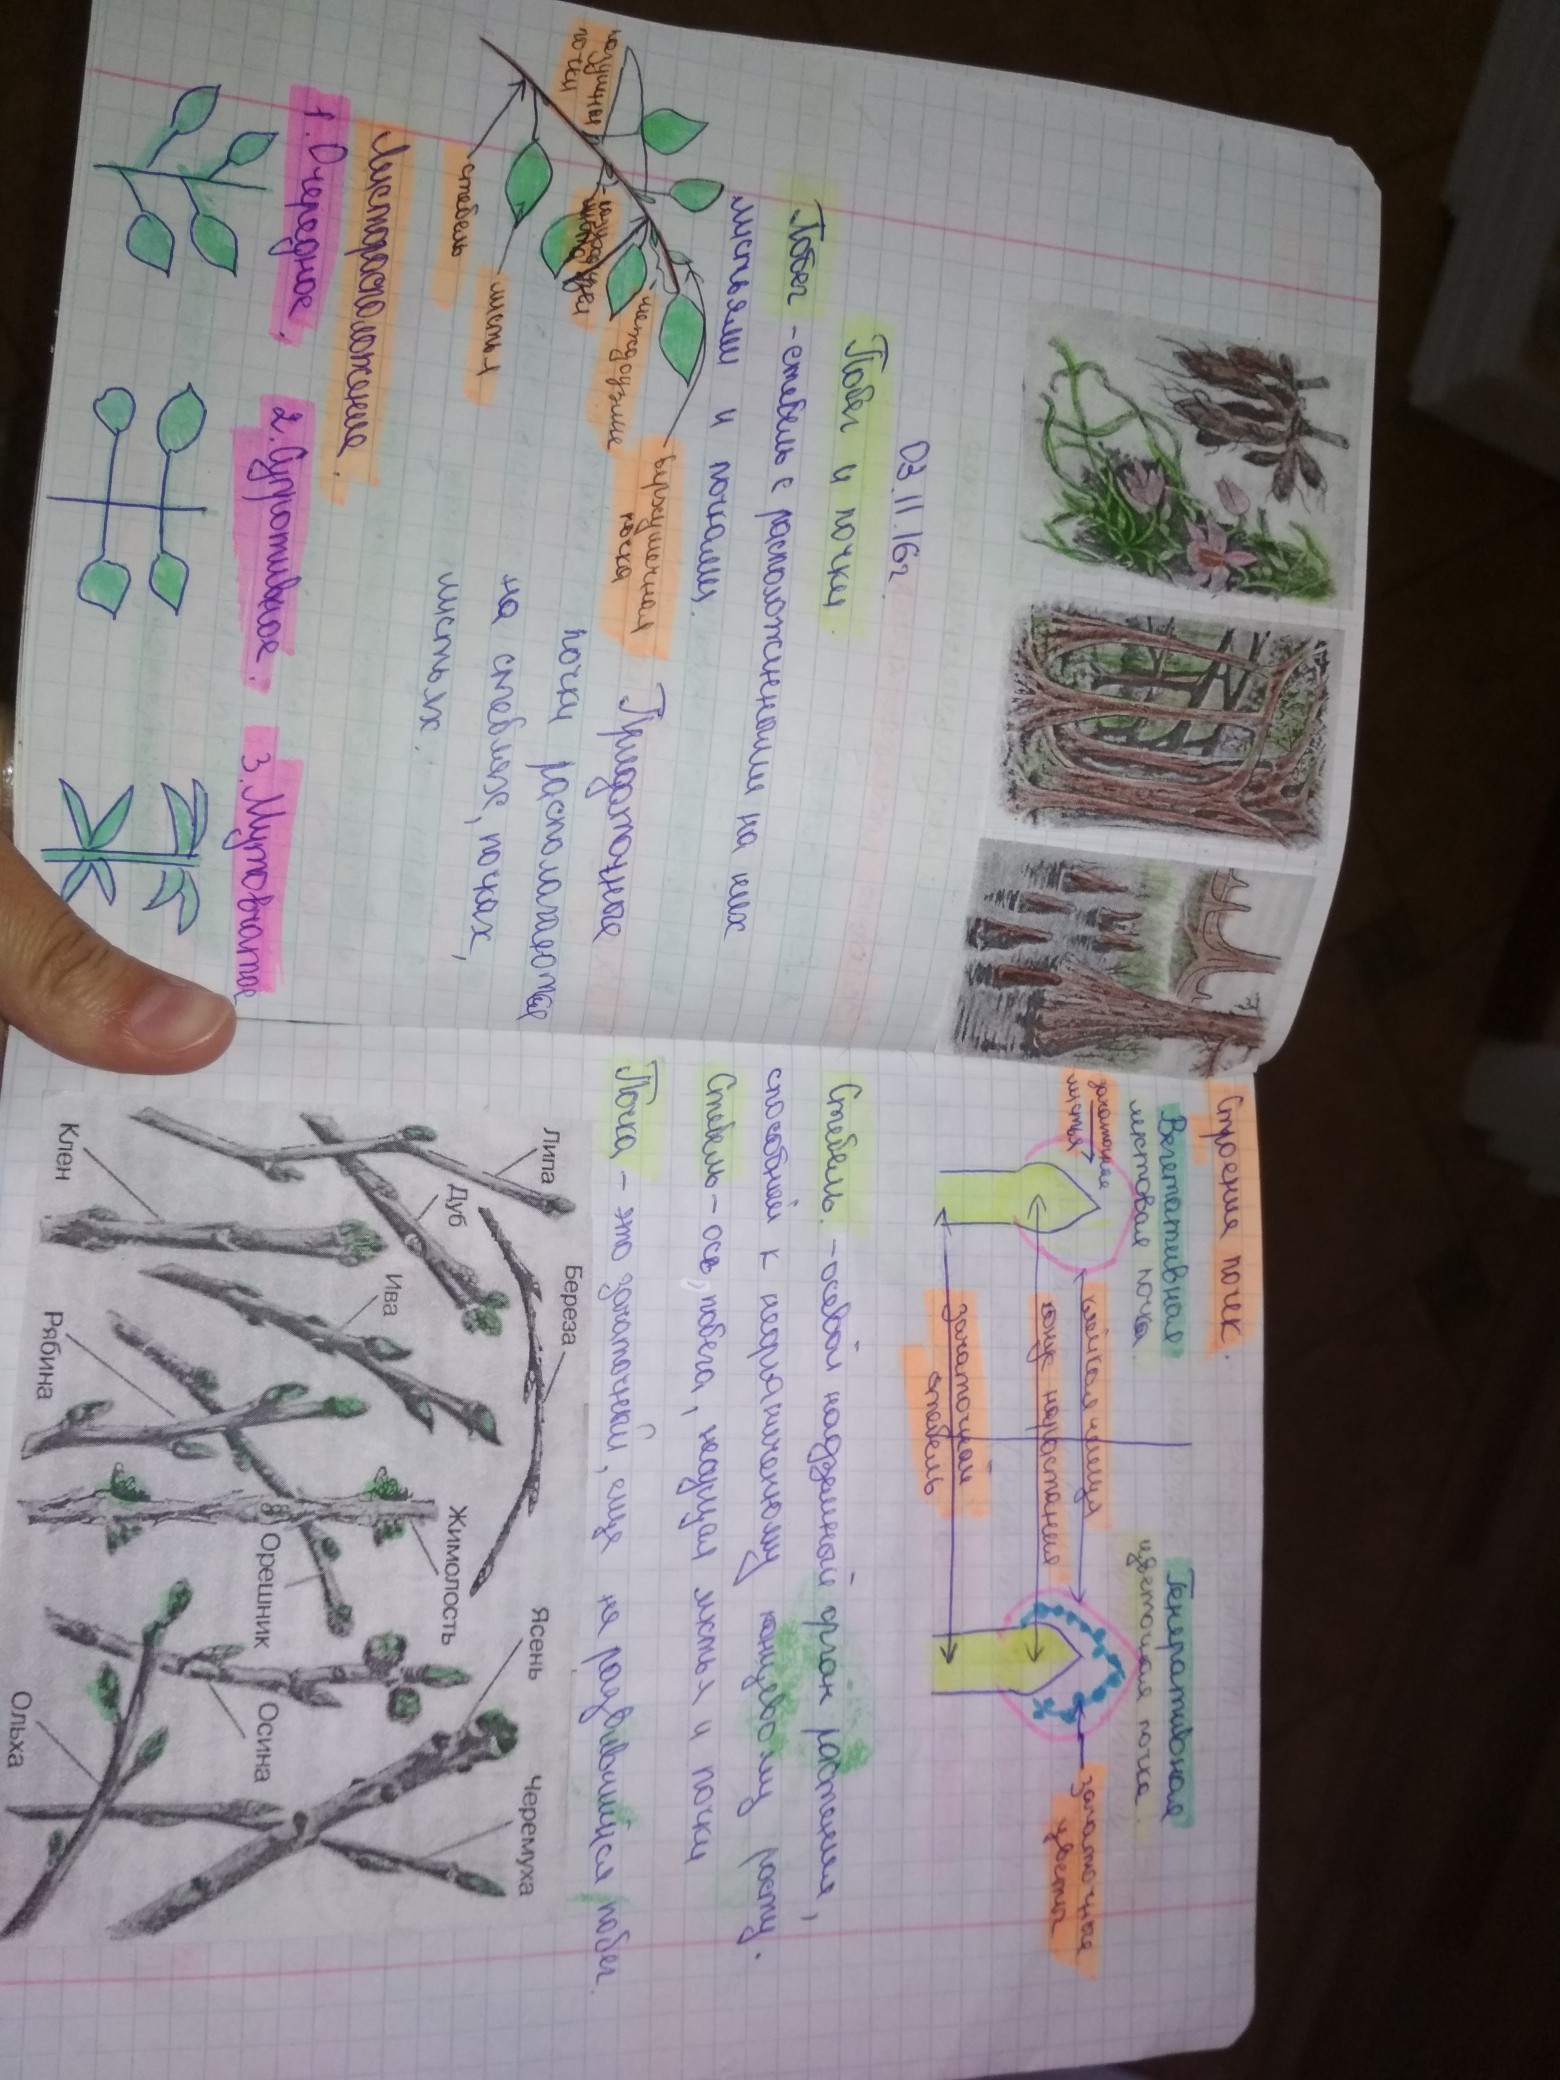 03.11.16г.
Побег и почки.
Побег - стебель с расположенными на них
листьями и почками.
пазушные
почки
верхушечная
почка
междоузлие
листья
стебель
Придаточные
почки располагаются
на стеблях, почках,
листьях.
Листорасположение.
1. Очередное.
2. Супротивное.
3. Мутовчатое
Строение почек.
Вегетативная
листовая почка.
Генеративная
цветочная почка.
зачаточные
листья
клейкая чешуя
конус нарастания
зачаточный
стебель
зачаточные
цветы
Стебель. - осевой надземный орган растения,
способный к неограниченному концевому росту.
Стебель - ось побега, несущая листья и почки
Почка - это зачаточный, еще не развившийся побег.
Липа
Береза
Ясень
Черемуха
Дуб
Жимолость
Клен
Ива
Орешник
Осина
Рябина
Ольха